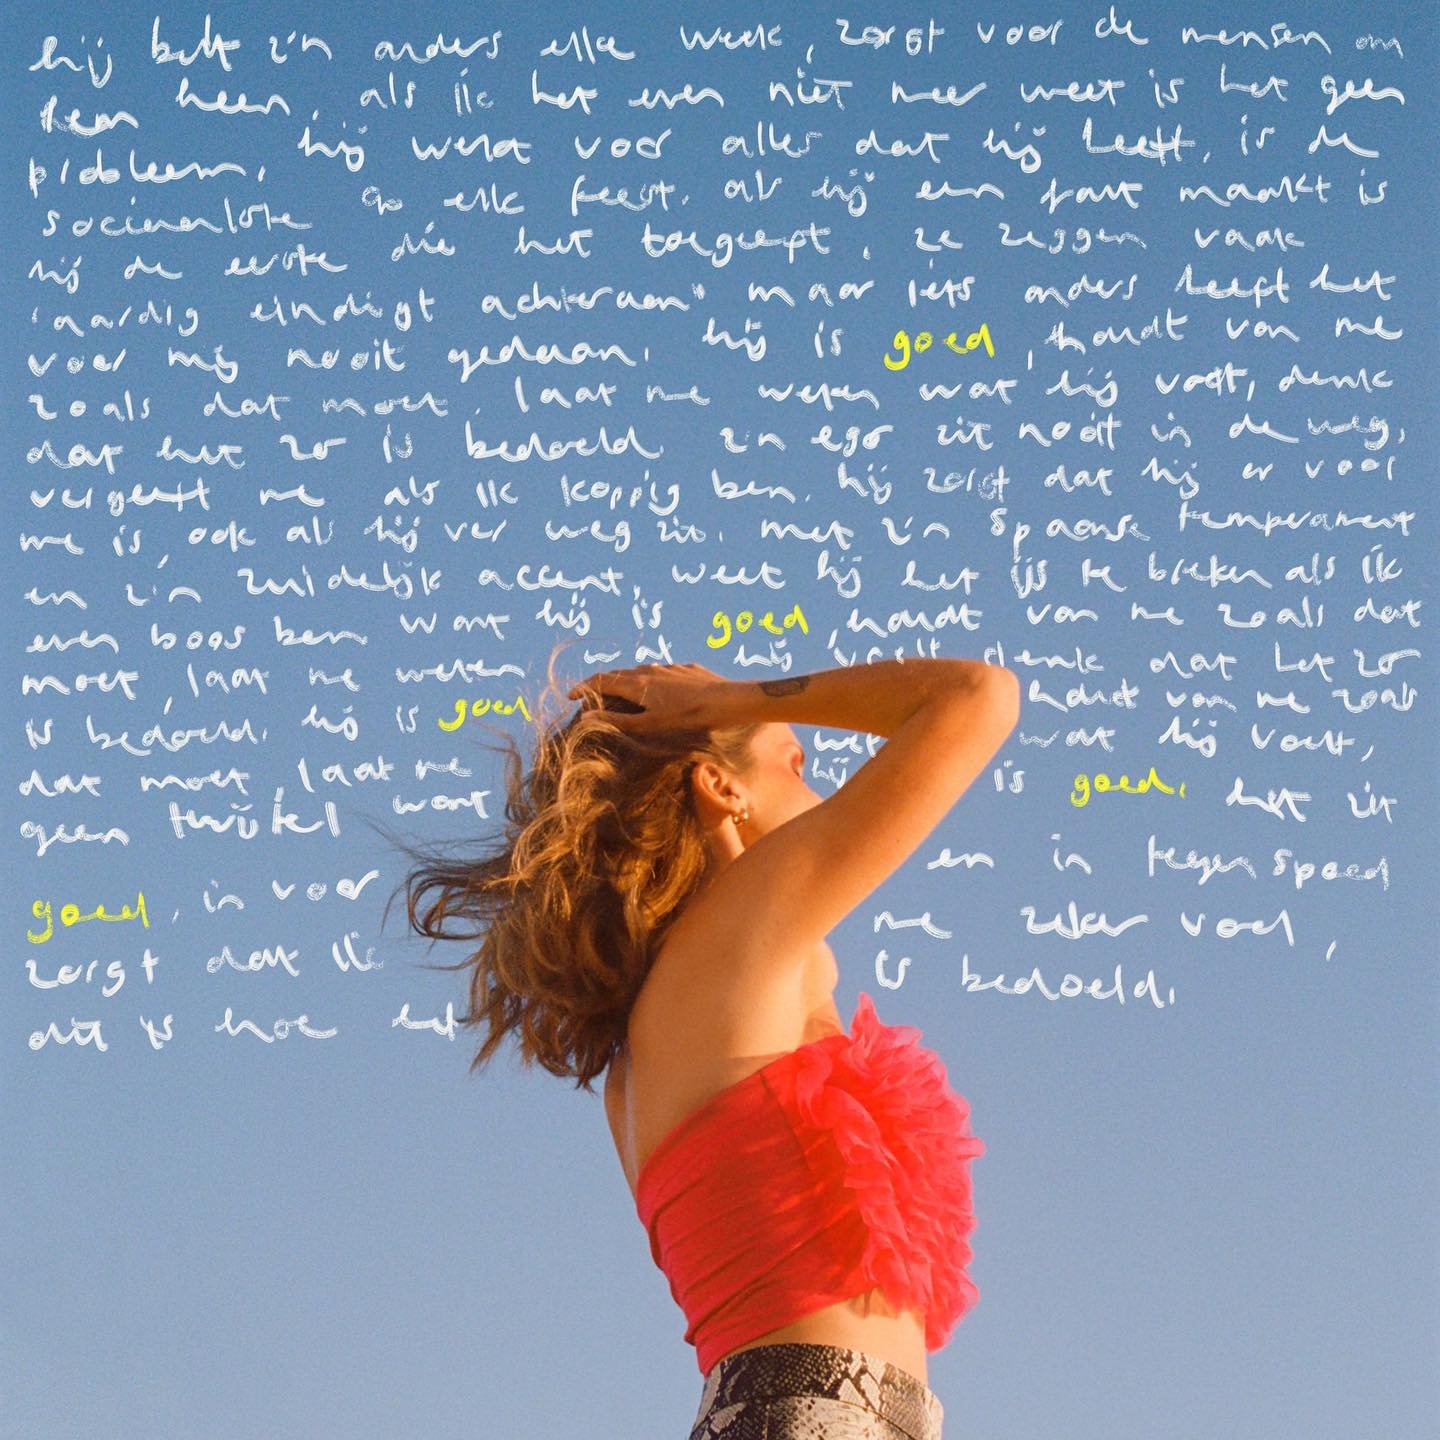 hij belt z'n ouders elke week, zorgt voor de mensen om
hem heen, als ik het even niet meer weet is het geen
probleem, hij werkt voor alles dat hij heeft, is de
sociaalste op elk feest. als hij een fout maakt is
hij de eerste die het toegeeft, ze zeggen vaak
'aardig eindigt achteraan' maar iets anders heeft het
voor mij nooit gedaan. hij is goed, houdt van me
zoals dat moet, laat me weten wat hij voelt, denk
dat het zo is bedoeld. z'n ego zit nooit in de weg,
vergeeft me als ik koppig ben. hij zorgt dat hij er voor
me is, ook als hij ver weg zit. met z'n Spaanse temperament
en z'n zuidelijk accent, weet hij het ijs te breken als ik
even boos ben want hij is goed, houdt van me zoals dat
moet, laat me weten wat hij voelt denk dat het zo
is bedoeld. hij is goed houdt van me zoals
dat moet, laat me wat hij voelt,
geen twijfel want hij is goed. het zit
goed, in voor en in tegenspoed
zorgt dat ik me zeker voel,
dit is hoe het is bedoeld.